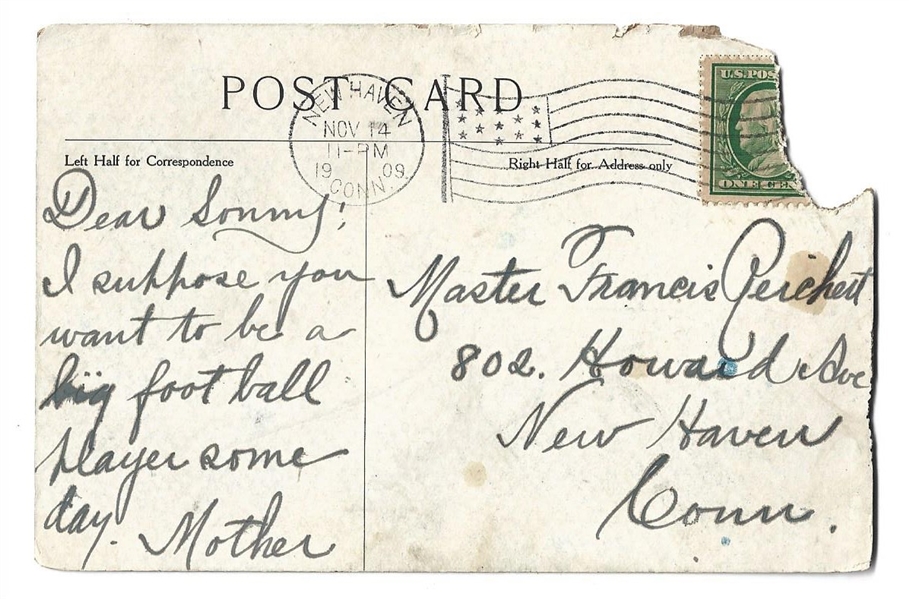 POST CARD
NEW HAVEN
NOV 14
11-PM
1909
CONN.
U.S.POS
ONE CEN
Left Half for Correspondence
Right Half for Address only
Dear Sonny!
I suppose you
want to be a
big foot ball
player some
day. Mother
Master Francis Reichert
802. Howard Ave
New Haven
Conn.